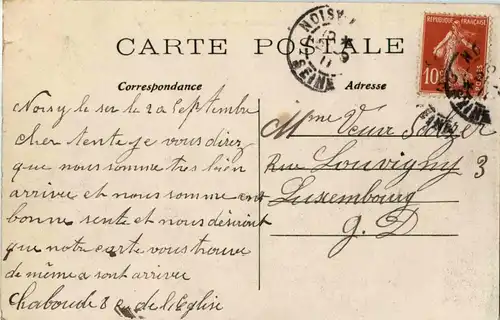 CARTE POSTALE
Correspondance
Adresse
NOISY
SEINE
REPUBLIQUE FRANÇAISE
10
Noisy le sec le 20 septembre
cher tente je vous direz
que nous somme tres bien
arrivee et nous somme ent
bonne sente et nous désiront
que notre carte vous trouve
de même a sont arrivee
Chaboude 8 R de l'Eglise
Mme Veuve
Rue Louvigny 3
Luxembourg
G. D